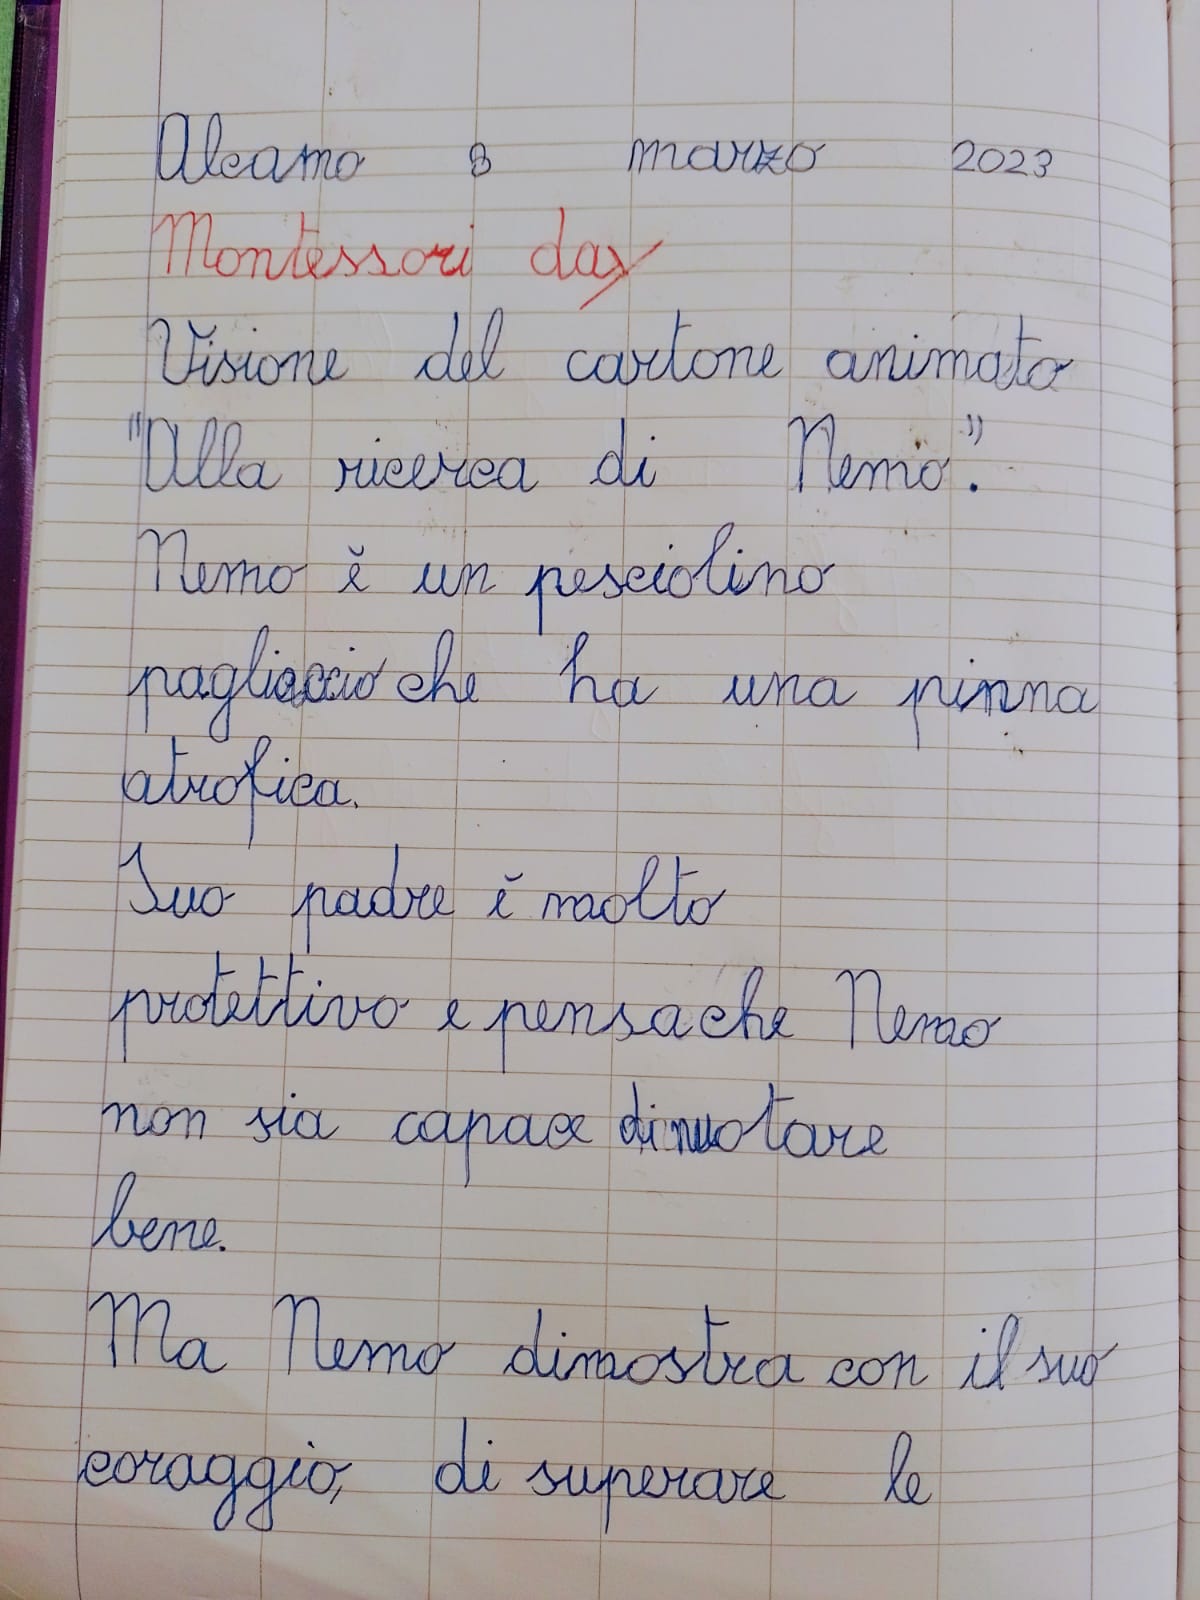 Alcamo 8 marzo 2023
Montessori day
Visione del cartone animato
"Alla ricerca di Nemo".
Nemo è un pesciolino
pagliaccio che ha una pinna
atrofica.
Suo padre è molto
protettivo e pensa che Nemo
non sia capace di nuotare
bene.
Ma Nemo dimostra con il suo
coraggio, di superare le